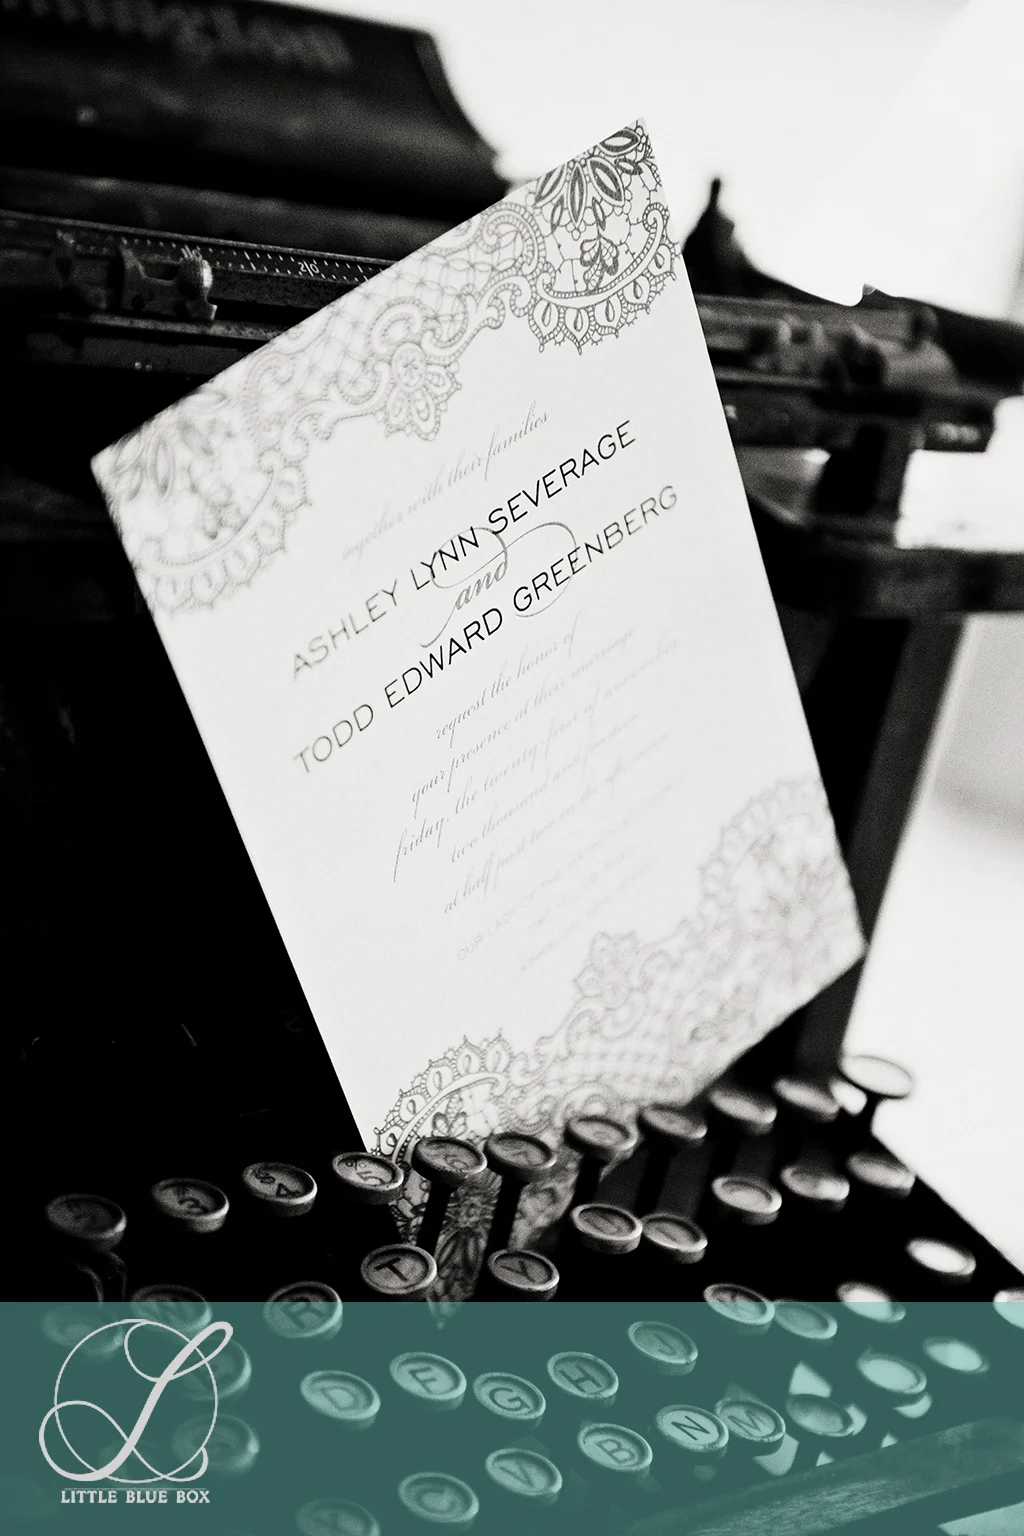 together with their families
ASHLEY LYNN SEVERAGE
and
TODD EDWARD GREENBERG
request the honor of
your presence at their marriage
friday, the twenty-first of november
two thousand and fourteen
at half past two in the afternoon
OUR LADY OF THE
20
3
4
5
6
T
Y
W
R
J
K
D
F
G
H
B
N
M
C
V
LITTLE BLUE BOX